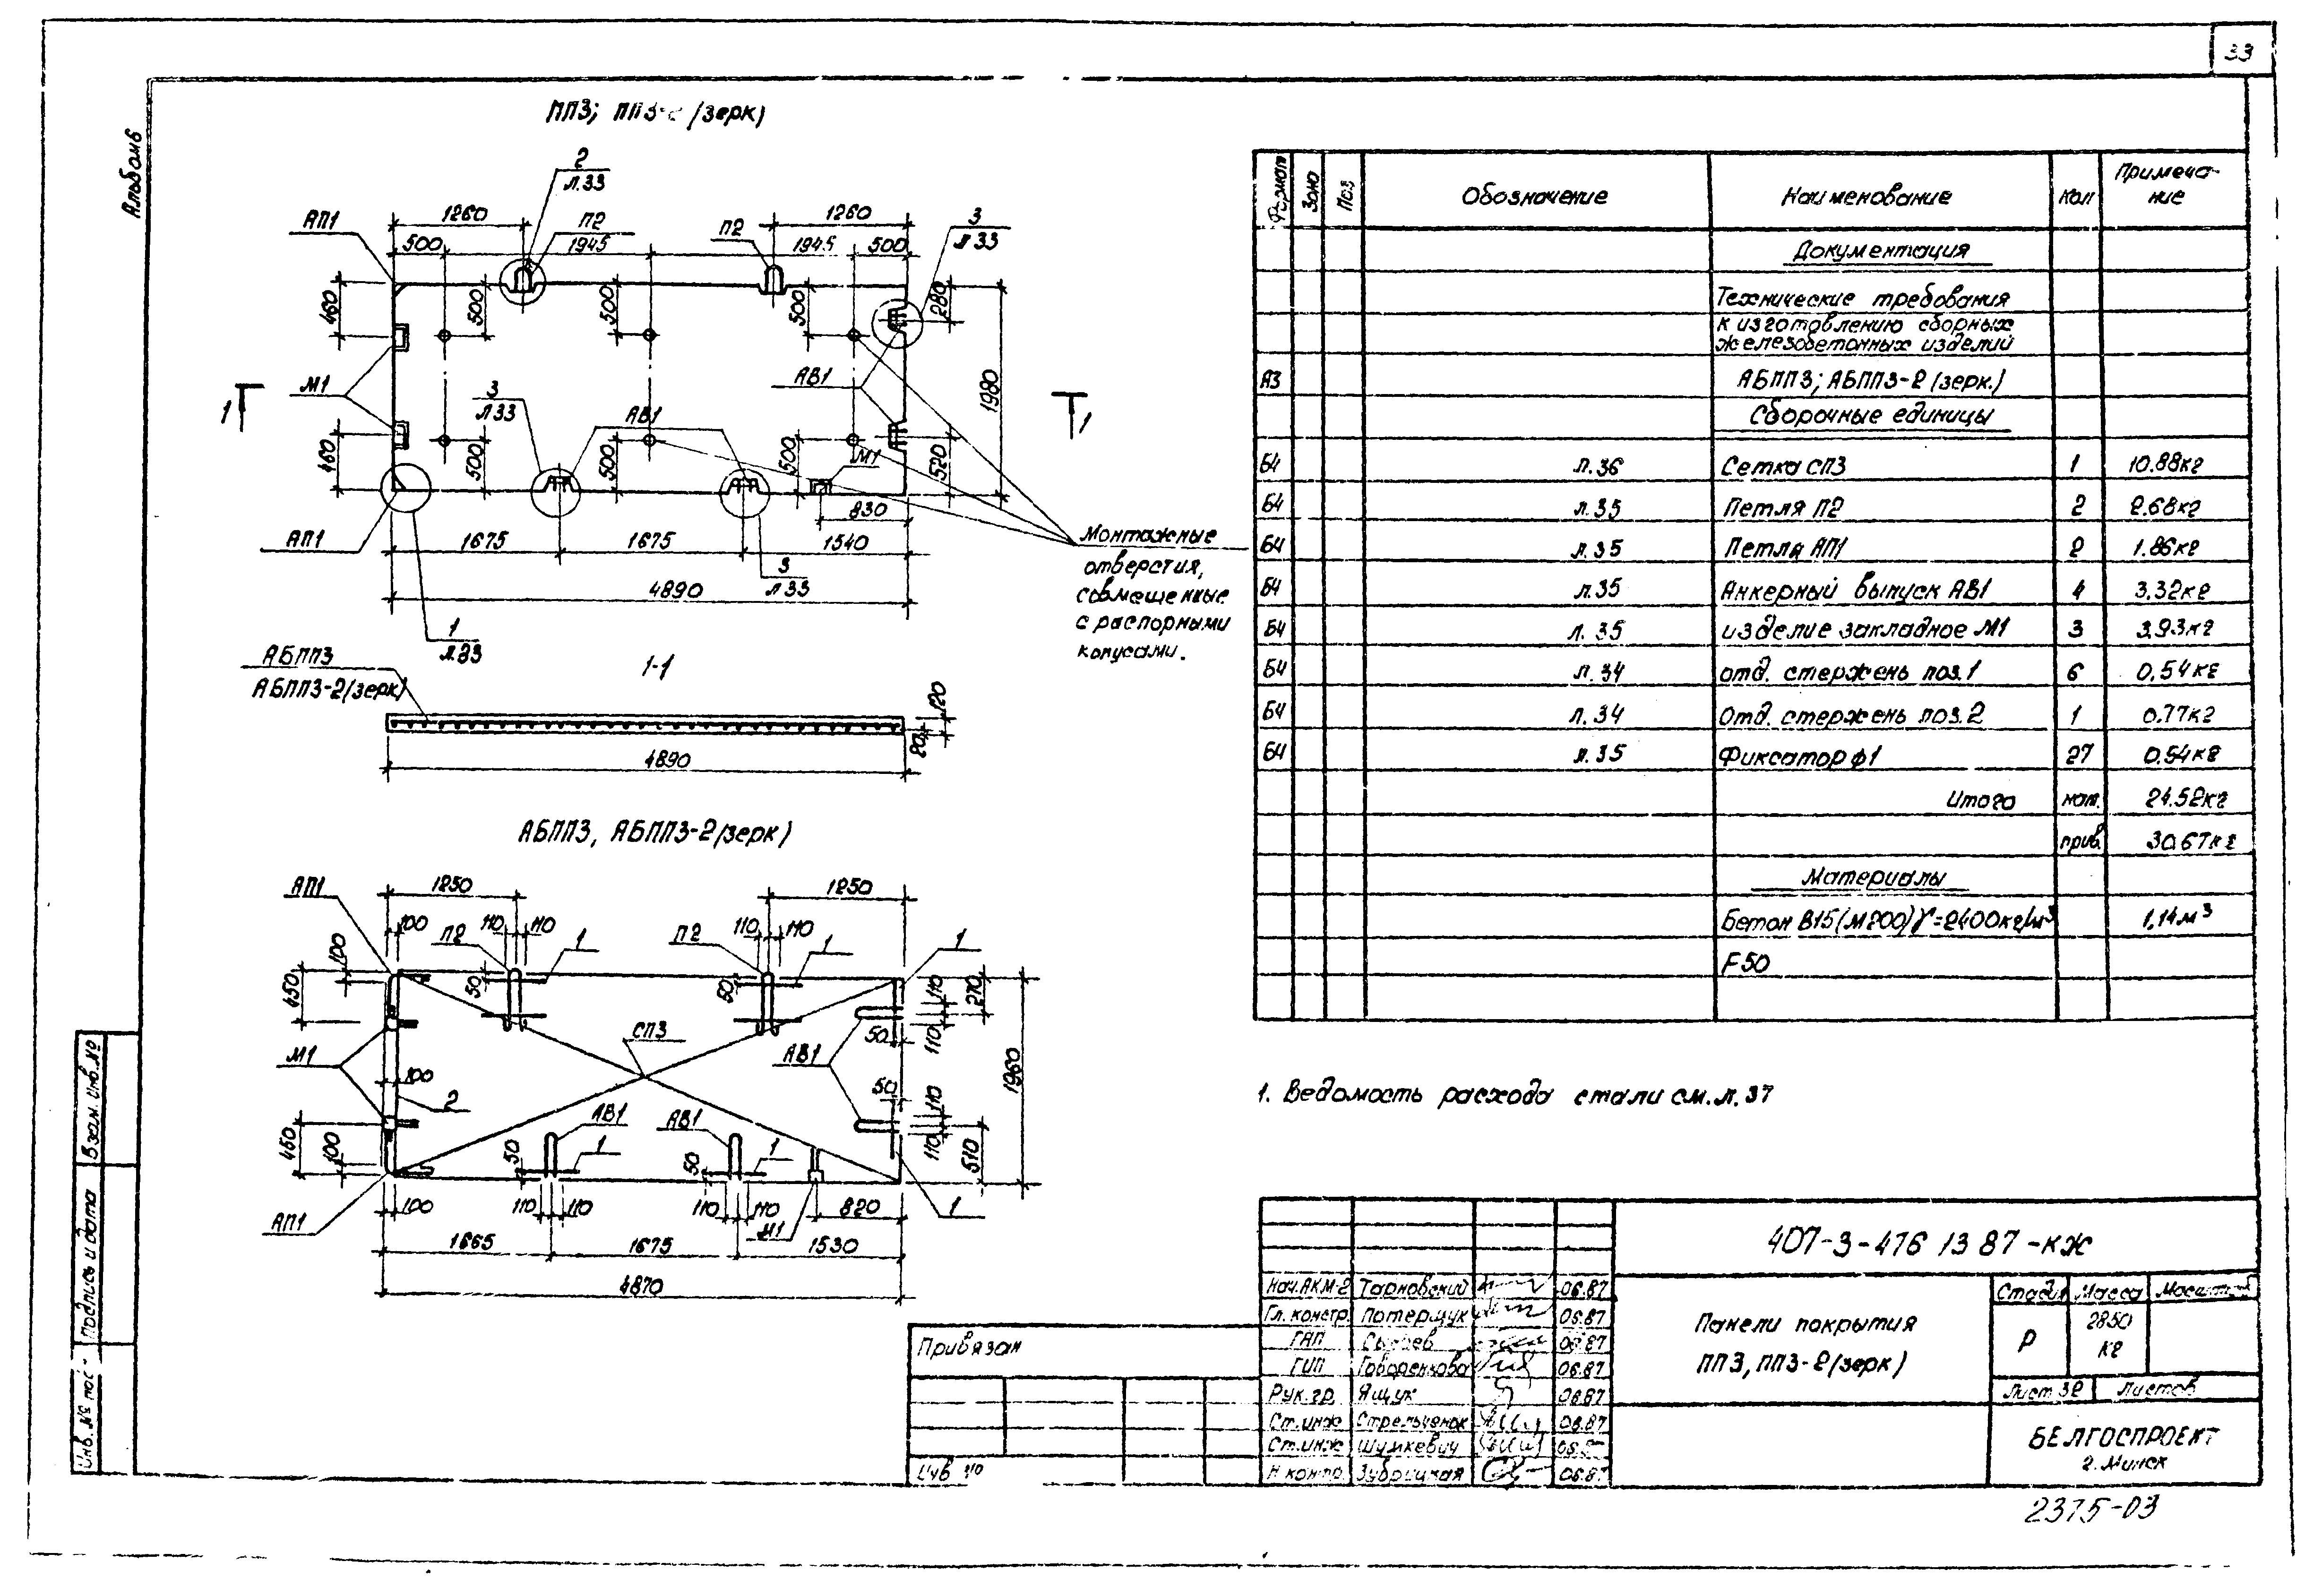 33
Альбом 6
ПП3; ПП3-2 (зерк)
2
л.33
1260
П2
1945
500
АП1
П2
1260
1945
500
3
л 33
460
500
500
500
280
М1
АВ1
1980
1
1
3
л 33
АВ1
460
500
500
500
М1
520
830
АП1
1675
1675
1540
3
л 33
4890
1
л.33
Монтажные
отверстия,
совмещенные
с распорными
конусами.
АБПП3
АБПП3-2 (зерк)
1-1
120
20
4890
АБПП3, АБПП3-2 (зерк)
АП1
1250
1250
100
П2
110
110
1
П2
110
110
1
1
100
450
50
50
110
270
СП3
50
110
М1
АВ1
100
1960
2
50
110
АВ1
АВ1
450
100
50
1
50
1
110
510
АП1
100
110
110
110
110
М1
820
1
1665
1675
1530
4870
Формат
Зона
Поз
Обозначение
Наименование
Кол
Примеча-
ние
Документация
Технические требования
к изготовлению сборных
железобетонных изделий
А3
АБПП3; АБПП3-2 (зерк.)
Сборочные единицы
Б4 л.36 Сетка СП3 1 10.88кг
Б4 л.35 Петля П2 2 2.68кг
Б4 л.35 Петля АП1 2 1.86кг
Б4 л.35 Анкерный выпуск АВ1 4 3.32кг
Б4 л. 35 изделие закладное М1 3 3.93кг
Б4 л.34 отд. стержень поз.1 6 0.54кг
Б4 л.34 Отд. стержень поз.2 1 0.77кг
Б4 л.35 Фиксатор ф1 27 0.54кг
Итого нат. 24.52кг
прив. 30.67кг
Материалы
Бетон В15 (М200) γ=2400кг/м³ 1,14м³
F50
1. Ведомость расхода стали см. л. 37
407-3-476 13 87 -КЖ
Нач.АКМ-2 Тарновский 06.87
Гл. констр. Потерщук 06.87
ГАП 06.87
ГИП Говоренкова 06.87
Рук. гр. Ящук 06.87
Ст.инж Стрельченок 06.87
Ст.инж Шумкевич
Н контр. Зубрицкая 06.87
Панели покрытия
ПП3, ПП3-2 (зерк)
Стадия Масса Масштаб
Р
2850
кг
Лист 32 Листов
БЕЛГОСПРОЕКТ
г. Минск
Привязан
Инв №
Взам. инв. №
Подпись и дата
Инв. №
2375-03